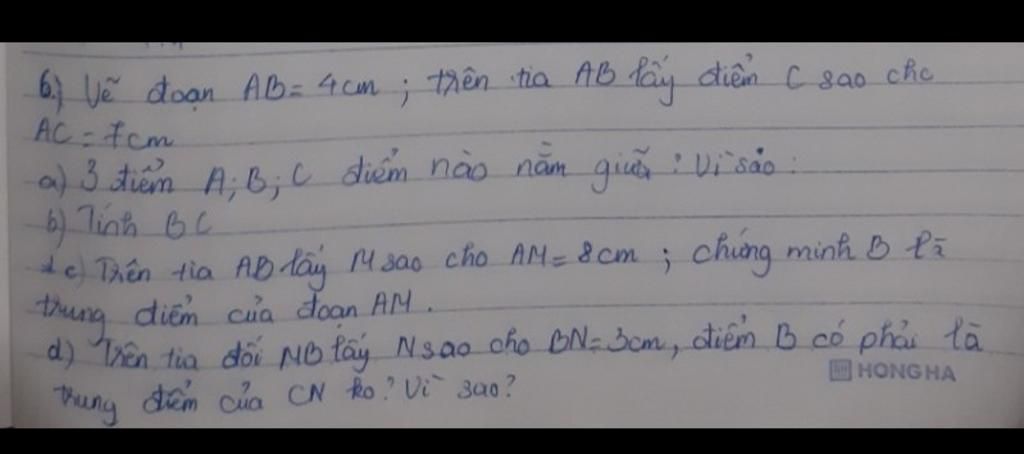 6.) Vẽ đoạn AB = 4cm ; trên tia AB lấy điểm C sao cho
AC = 7cm
a) 3 điểm A; B; C điểm nào nằm giữa? Vì sao?
b) Tính BC
c) Trên tia AB lấy M sao cho AM = 8cm ; chứng minh B là
trung điểm của đoạn AM.
d) Trên tia đối MB lấy N sao cho BN = 3cm, điểm B có phải là
HONG HA
trung điểm của CN ko? Vì sao?